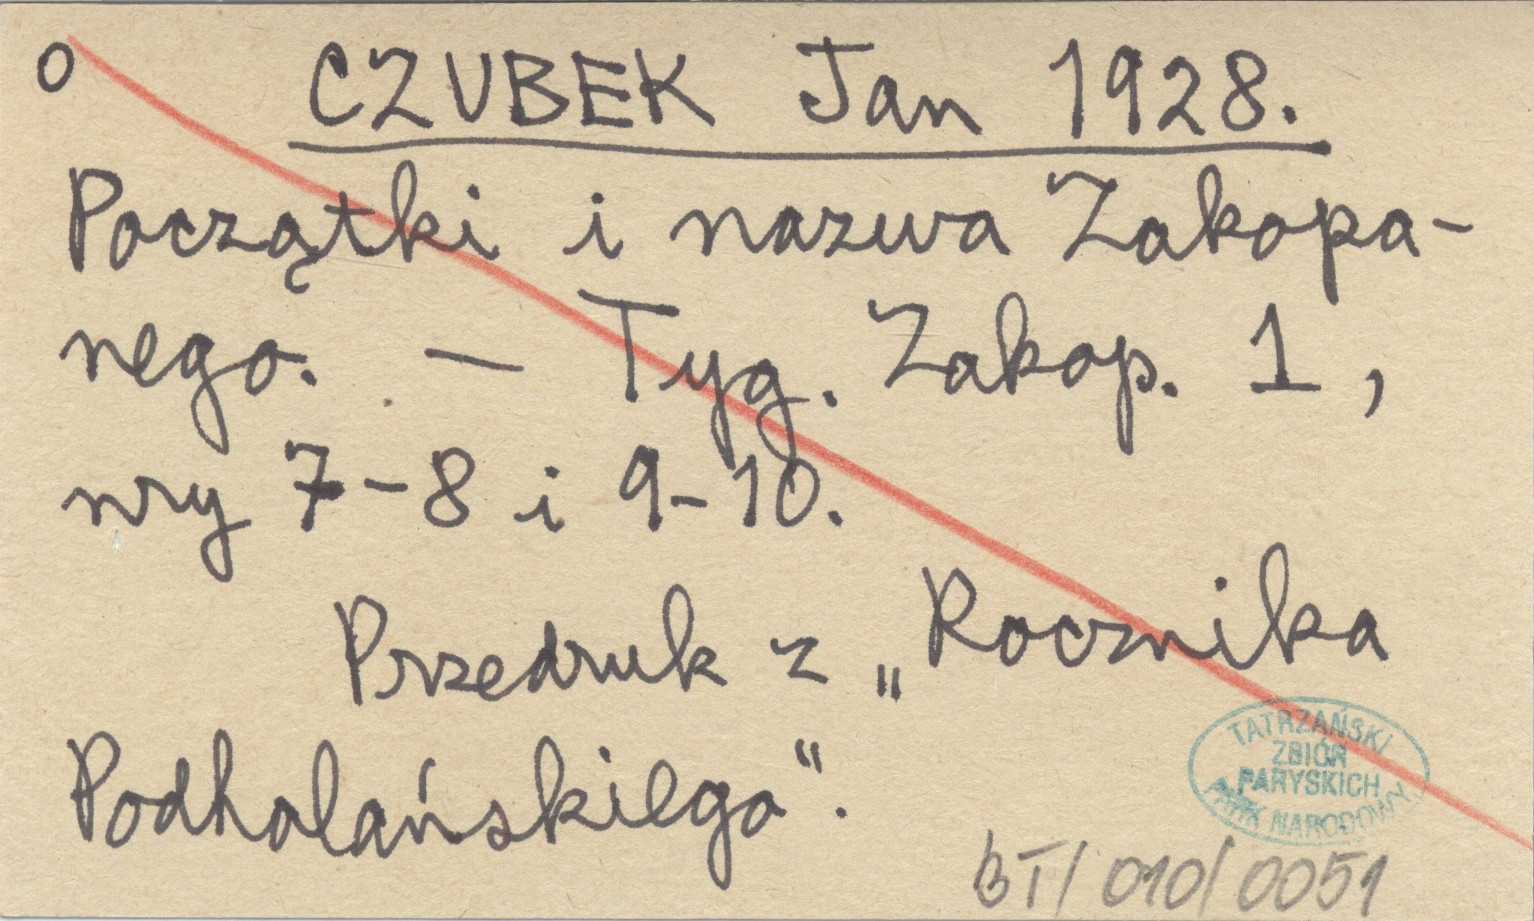 o CZUBEK Jan 1928.
Początki i nazwa Zakopa-
nego. — Tyg. Zakop. 1,
nry 7-8 i 9-10.
Przedruk z „Rocznika
Podhalańskiego".
TATRZAŃSKI
ZBIÓR
PARYSKICH
PARK NARODOWY
BT/010/0051